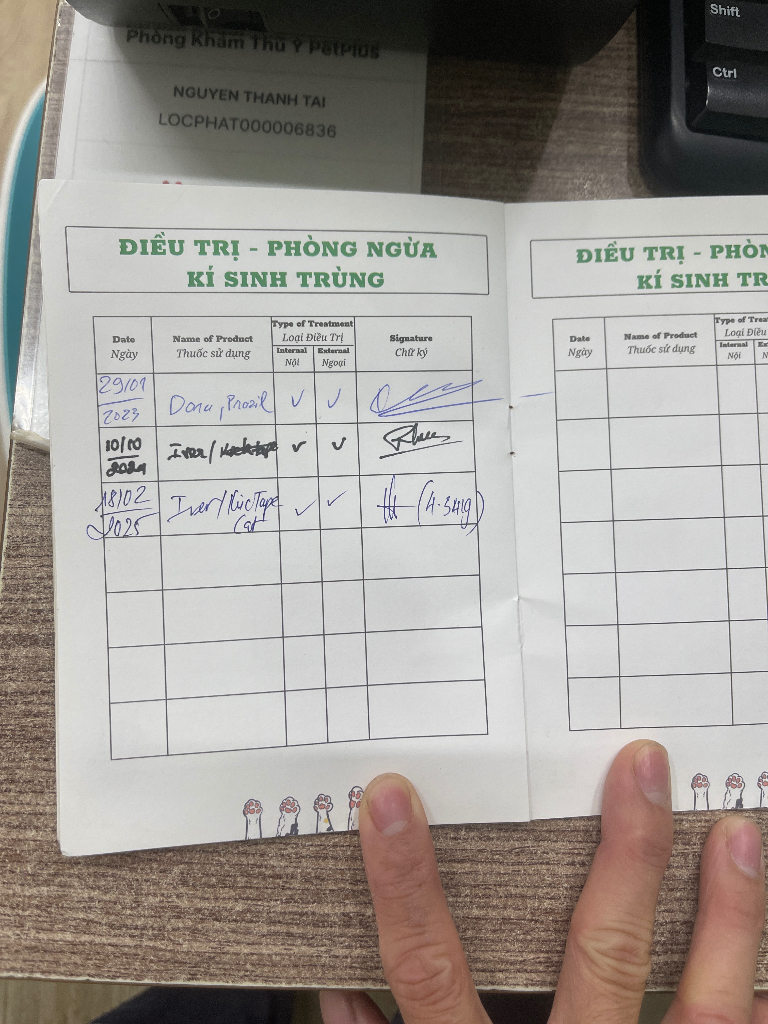 Shift
Ctrl
Phòng Khám Thú Y PetPlus
NGUYEN THANH TAI
LOCPHAT000006836
ĐIỀU TRỊ - PHÒNG NGỪA
KÍ SINH TRÙNG
Date
Ngày
Name of Product
Thuốc sử dụng
Type of Treatment
Loại Điều Trị
Internal
Nội
External
Ngoại
Signature
Chữ ký
29/01
2023
Dora, Prazil
10/10
2024
Iver/
18/02
2025
Iver/
Cat
(4.34kg)
ĐIỀU TRỊ - PHÒN
KÍ SINH TR
Date
Ngày
Name of Product
Thuốc sử dụng
Type of Treat
Loại Điề
Internal
Nội